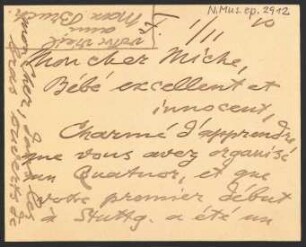 N.Mus.ep. 2912
1/11
Mon cher Miche,
Bébé excellent et
innocent,
Charmé d'apprendre
que vous avez organisé
un Quatuor, et que
votre premier début
à Stuttg. a été un
votre vieil
ami
Max Bruch
mon cher, dans les
bras ouverts de